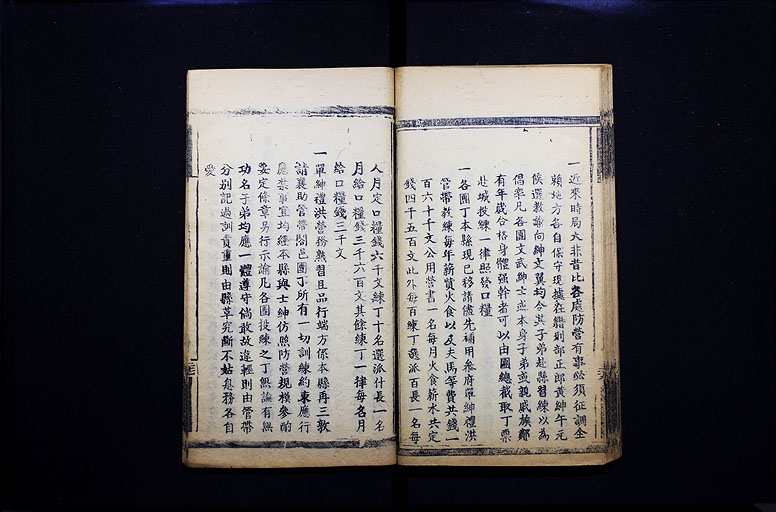 一近來時局大非昔比各處防營有事必須征調全
賴地方各自保守現據在籍刑部正郎黃紳午元
候選教諭向紳文翼均令其子弟赴縣習練以為
倡率凡各團文武紳士或本身子弟或親戚族鄰
有年歲合格身體强幹者可以由團總截取丁票
赴城投練一律照發口糧
一各團丁本縣現已移請儘先補用叅府單紳禮洪
管帶教練每年薪貲火食以及夫馬等費共錢一
百六十千文公用營書一名每月火食薪水共定
錢四千五百文此外每百練丁選派百長一名每
人月定口糧錢六千文練丁十名選派什長一名
月給口糧錢三千六百文其餘練丁一律每名月
給口糧錢三千文
一單紳禮洪營務熟習且品行端方係本縣再三敦
請襄助管帶閤邑團丁所有一切訓練約束應行
應禁事宜均經本縣與士紳仿照防營規模參酌
妥定條章另行示諭凡各團投練之丁無論有無
功名子弟均應一體遵守倘敢故違輕則由管帶
分别記過訓責重則由縣草究斷不姑息務各自
愛